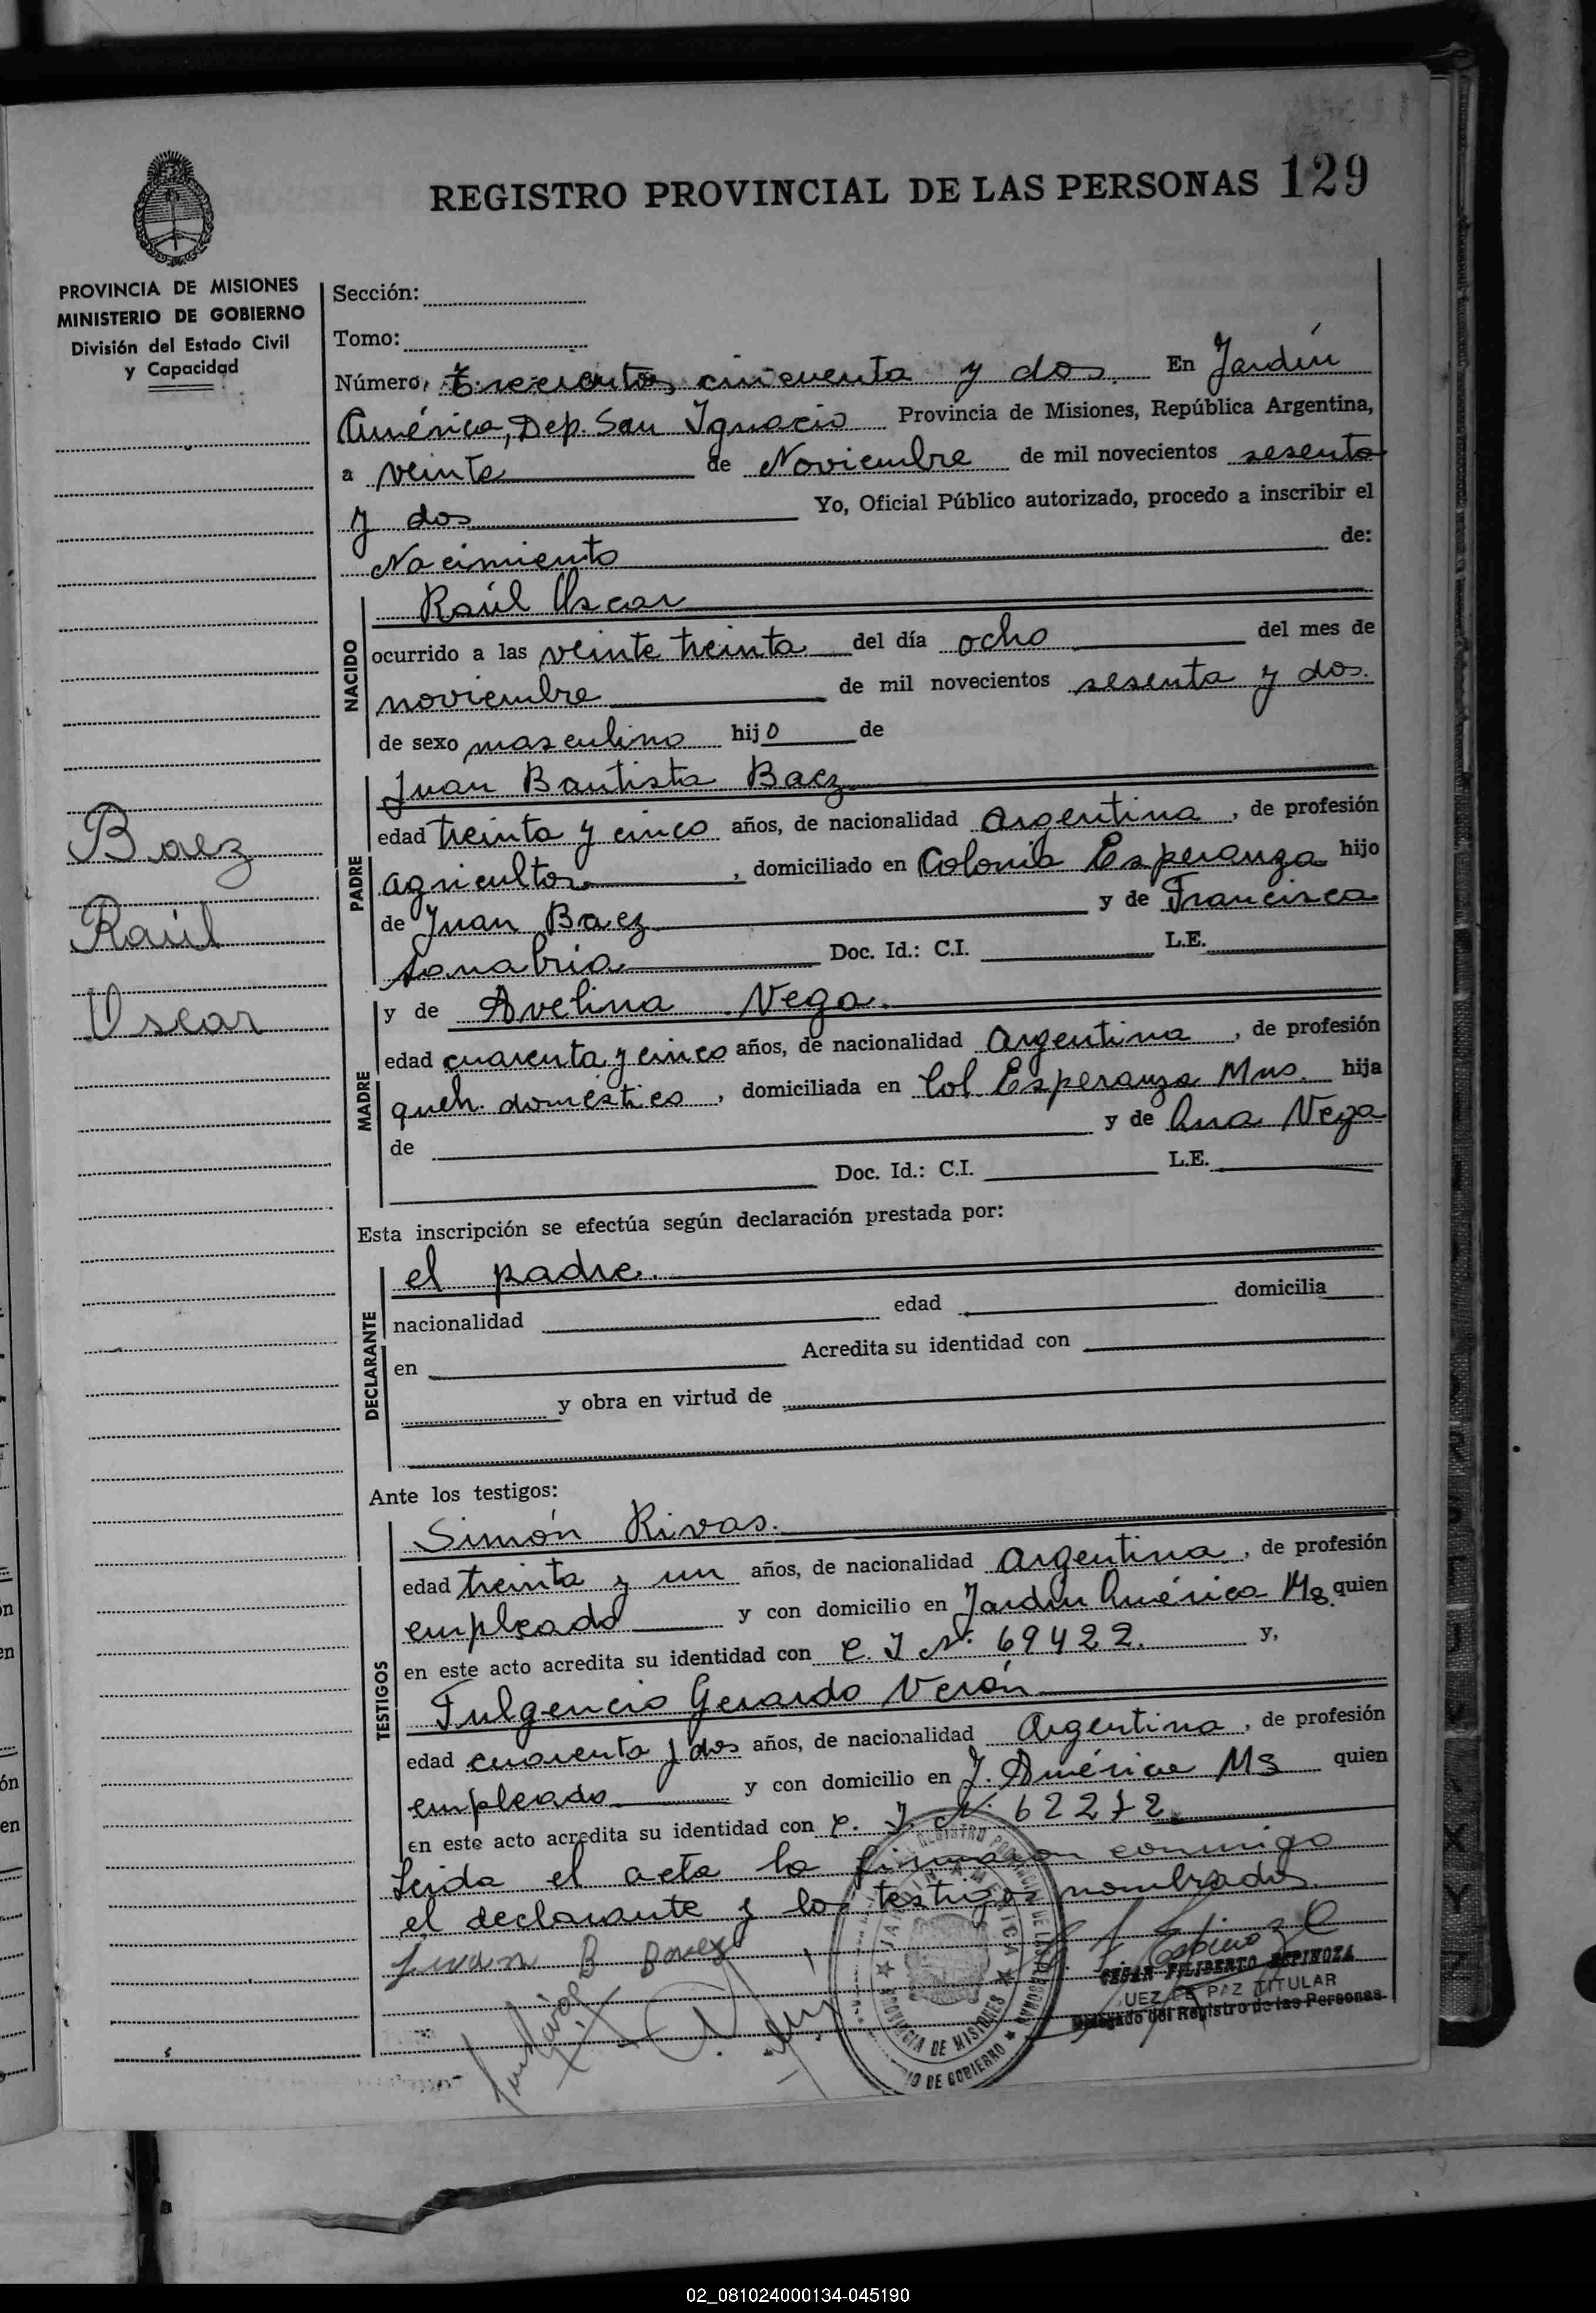 REGISTRO PROVINCIAL DE LAS PERSONAS 129
PROVINCIA DE MISIONES
MINISTERIO DE GOBIERNO
División del Estado Civil
y Capacidad
Baez
Raúl
Oscar
Sección:
Tomo:
Número, Trescientos cincuenta y dos. En Jardín
América, Dep. San Ignacio Provincia de Misiones, República Argentina,
a veinte de Noviembre de mil novecientos sesenta
y dos Yo, Oficial Público autorizado, procedo a inscribir el
Nacimiento de:
NACIDO
Raúl Oscar
ocurrido a las veinte treinta del día ocho del mes de
noviembre de mil novecientos sesenta y dos.
de sexo masculino hijo de
PADRE
Juan Bautista Baez
edad treinta y cinco años, de nacionalidad Argentina, de profesión
agricultor, domiciliado en Colonia Esperanza hijo
de Juan Baez y de Francisca
Sanabria Doc. Id.: C.I. L.E.
MADRE
y de Avelina Vega.
edad cuarenta y cinco años, de nacionalidad Argentina, de profesión
queh. domésticos, domiciliada en Col. Esperanza Mns. hija
de y de Ana Vega
Doc. Id.: C.I. L.E.
Esta inscripción se efectúa según declaración prestada por:
DECLARANTE
el padre.
nacionalidad edad domicilia
en Acredita su identidad con
y obra en virtud de
Ante los testigos:
TESTIGOS
Simón Rivas.
edad treinta y un años, de nacionalidad Argentina, de profesión
empleado y con domicilio en Jardín América Ms. quien
en este acto acredita su identidad con C. I Nº 69422. y,
Fulgencio Gerardo Verón
edad cuarenta y dos años, de nacionalidad Argentina, de profesión
empleado y con domicilio en J. América Ms quien
en este acto acredita su identidad con C. I. Nº 62272.
Leida el acta la firmaron conmigo
el declarante y los testigos nombrados.
Juan B Baez
REGISTRO PROVINCIAL DE LAS PERSONAS
JARDIN AMERICA
PROVINCIA DE MISIONES
MINISTERIO DE GOBIERNO
CESAR FILIBERTO ESPINOZA
JUEZ DE PAZ TITULAR
Delegado del Registro de las Personas
02_081024000134-045190